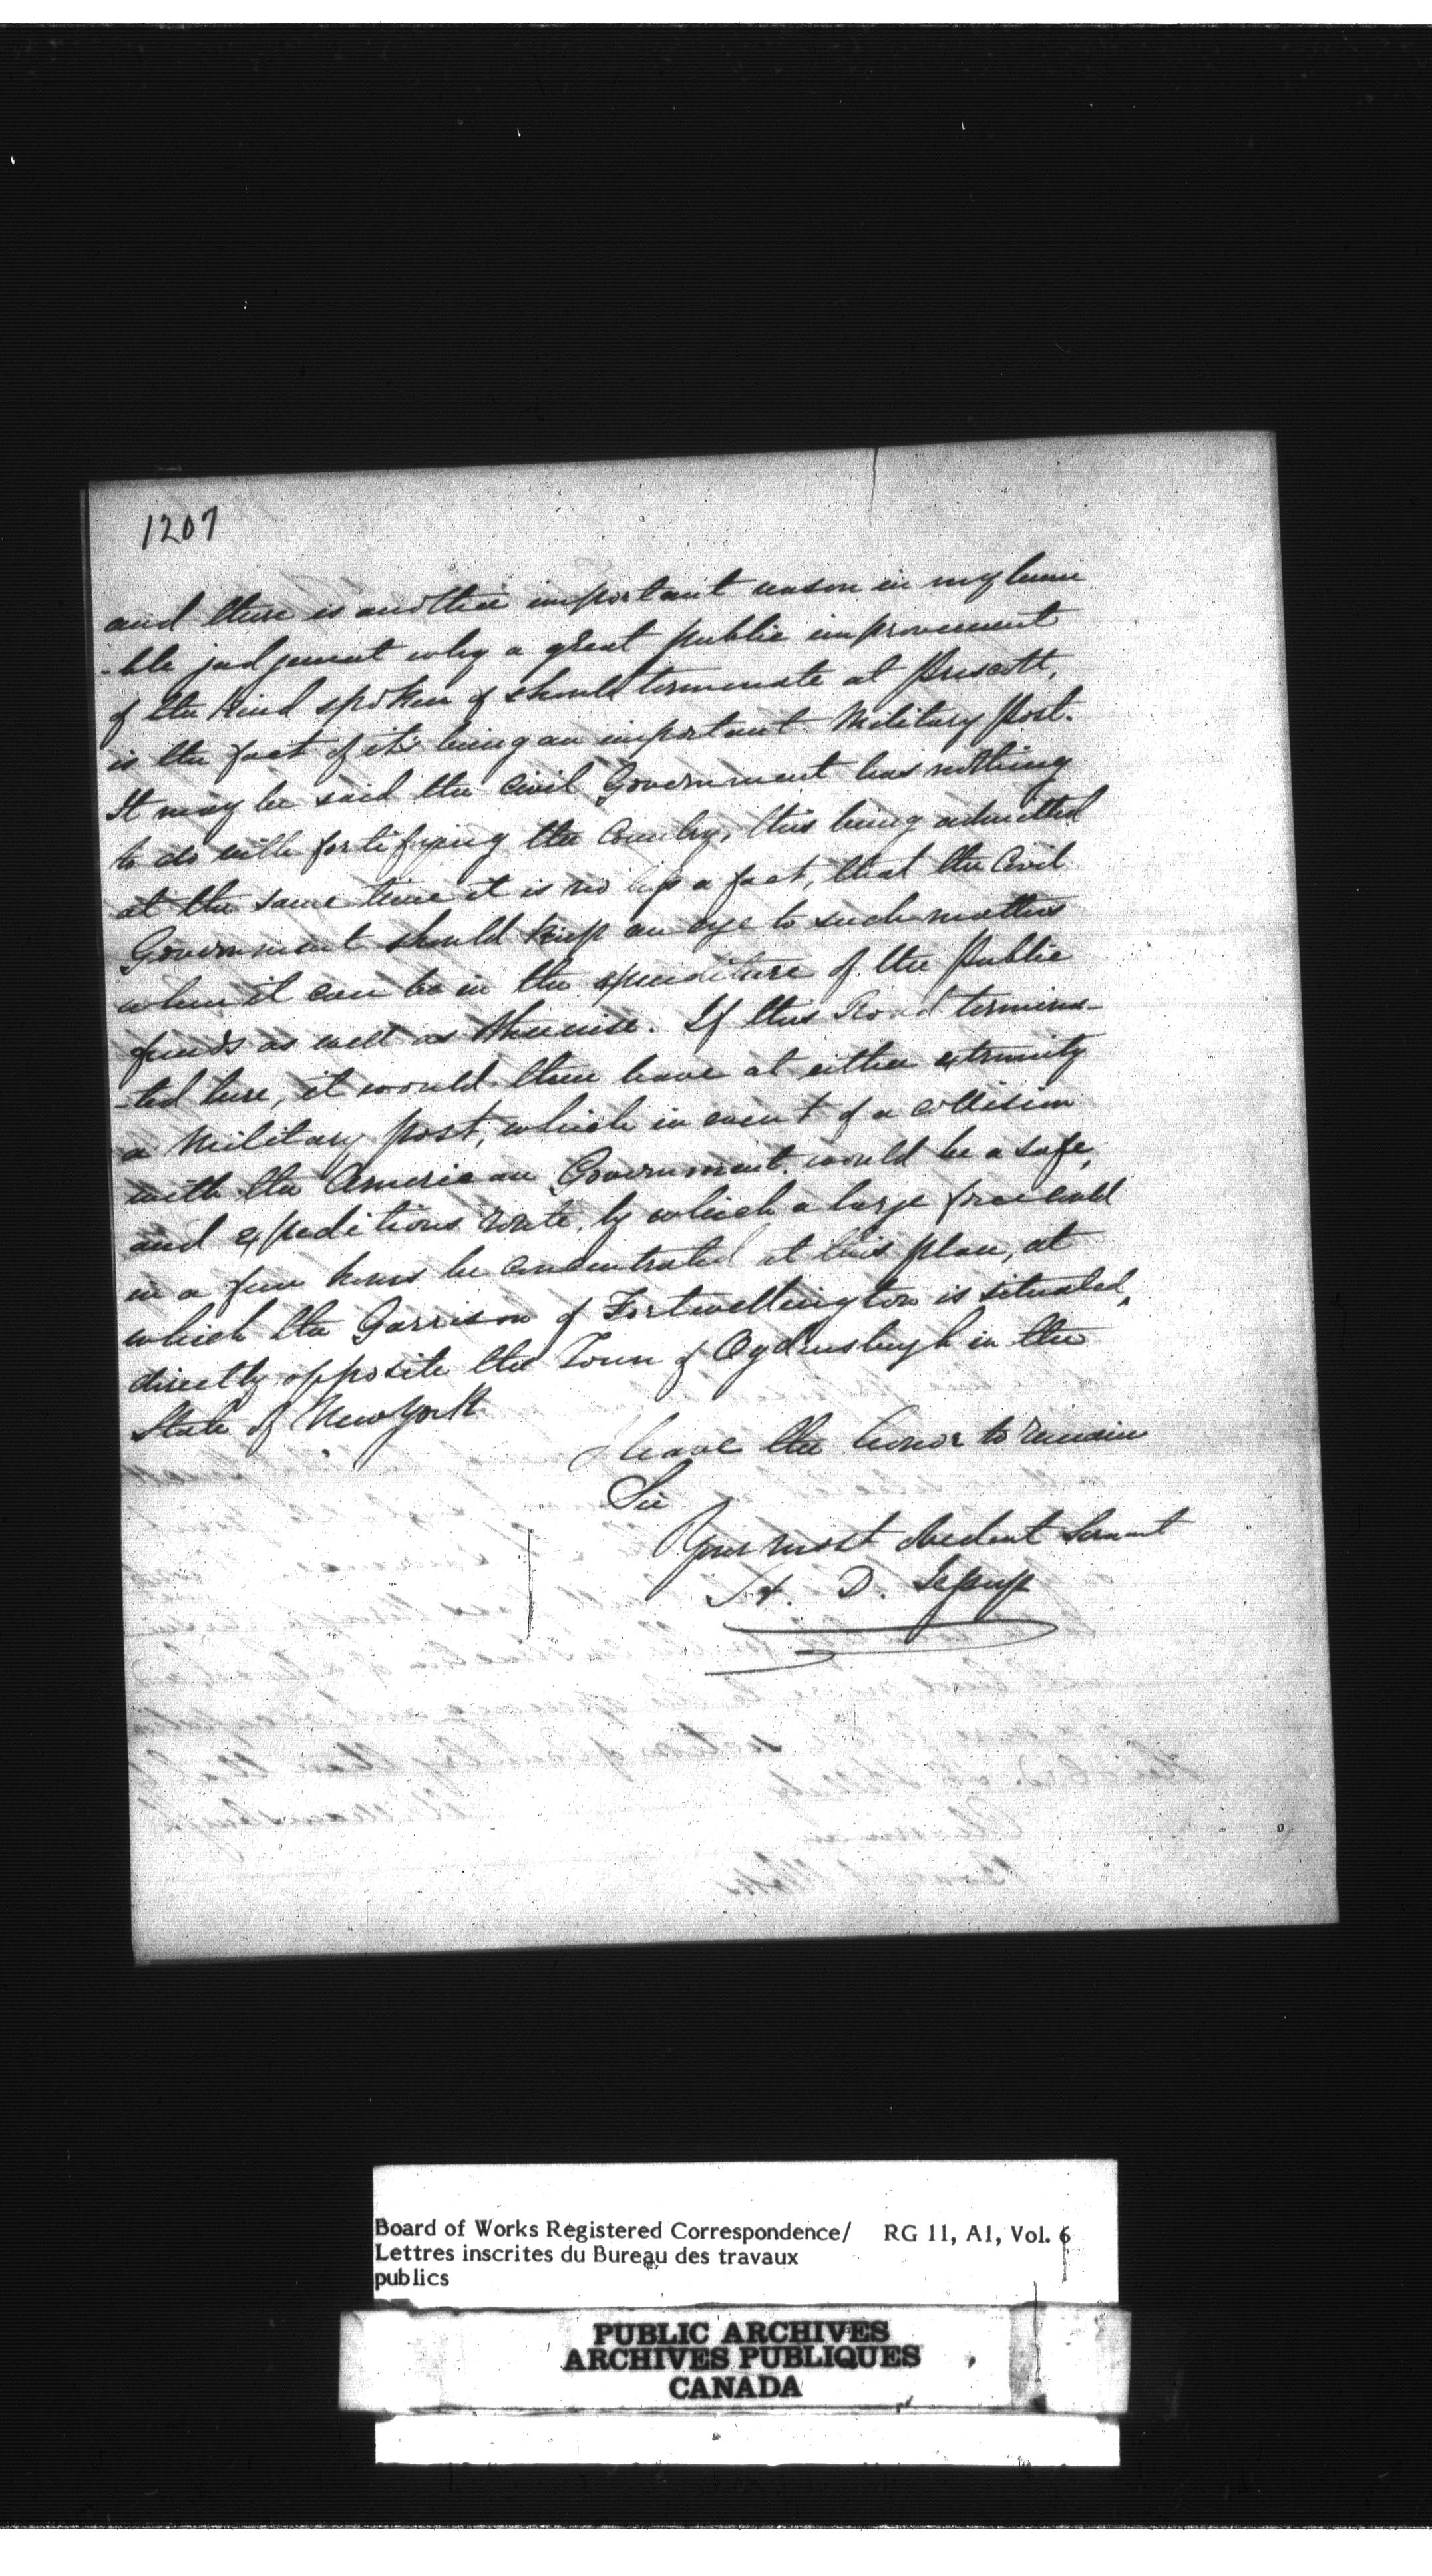 1207
and there is another important reason in my hum
-ble judgement why a great public improvement
of the kind spoken of should terminate at Prescott,
is the fact of it's being an important Military Post.
It may be said the Civil Government has nothing
to do with fortifying the Country, this being admitted
at the same time it is no less a fact, that the Civil
Government should keep an eye to such matters
when it can be in the expenditure of the Public
funds as well as otherwise. If this Road termina-
-ted here, it would then have at either extremity
a Military post, which in event of a collision
with the American Government would be a safe,
and expeditious route, by which a large force could
in a few hours be concentrated at this place, at
which the Garrison of Fortwellington is situated,
directly opposite the Town of Ogdensburgh in the
State of New York
I have the honor to remain
Sir
Your most obedient Servant
H. D. Jessup
Board of Works Registered Correspondence/ RG 11, A1, Vol. 6
Lettres inscrites du Bureau des travaux
publics
PUBLIC ARCHIVES
ARCHIVES PUBLIQUES
CANADA